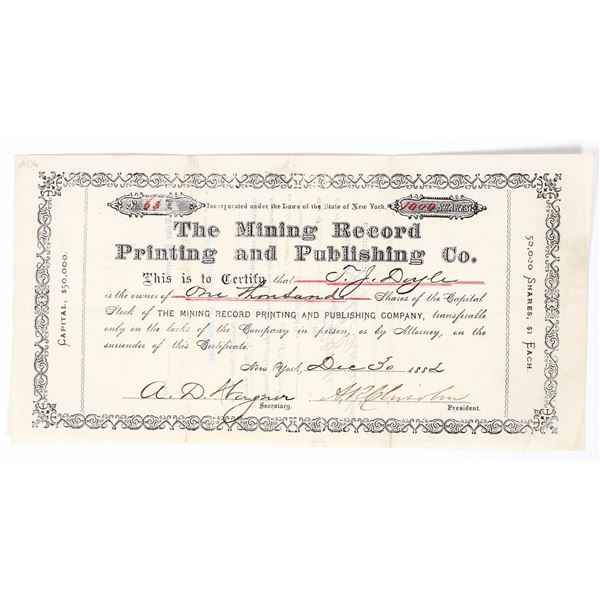 A06
No 63
Incorporated under the Laws of the State of New York.
1000 SHARES
The Mining Record
Printing and Publishing Co.
This is to Certify that T. J. Doyle
is the owner of One thousand Shares of the Capital
Stock of THE MINING RECORD PRINTING AND PUBLISHING COMPANY, transferable
only on the books of the Company in person, or by Attorney, on the
surrender of this Certificate.
New York, Dec 30 1882
A. D. Wagner
Secretary.
President.
CAPITAL, $50,000.
50,000 SHARES, $1 EACH.